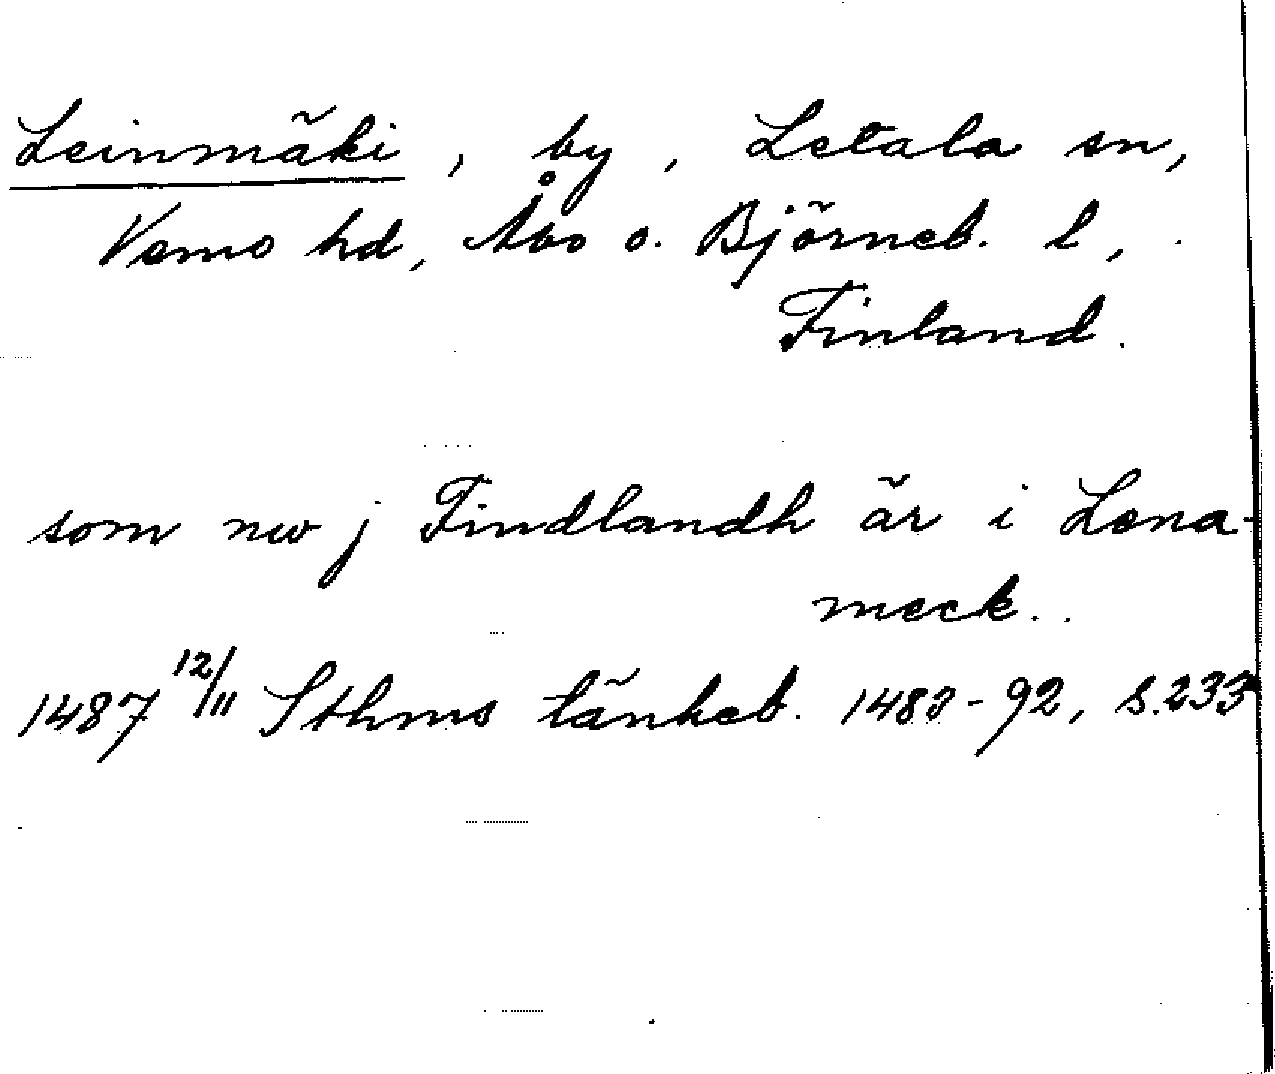 Leinmäki, by, Letala sn,
Vemo hd, Åbo o. Björneb. l,
Finland.
som nw j Findlandh är i Lena-
meck..
1487 12/11 Sthms tänkeb. 1483-92, s. 233